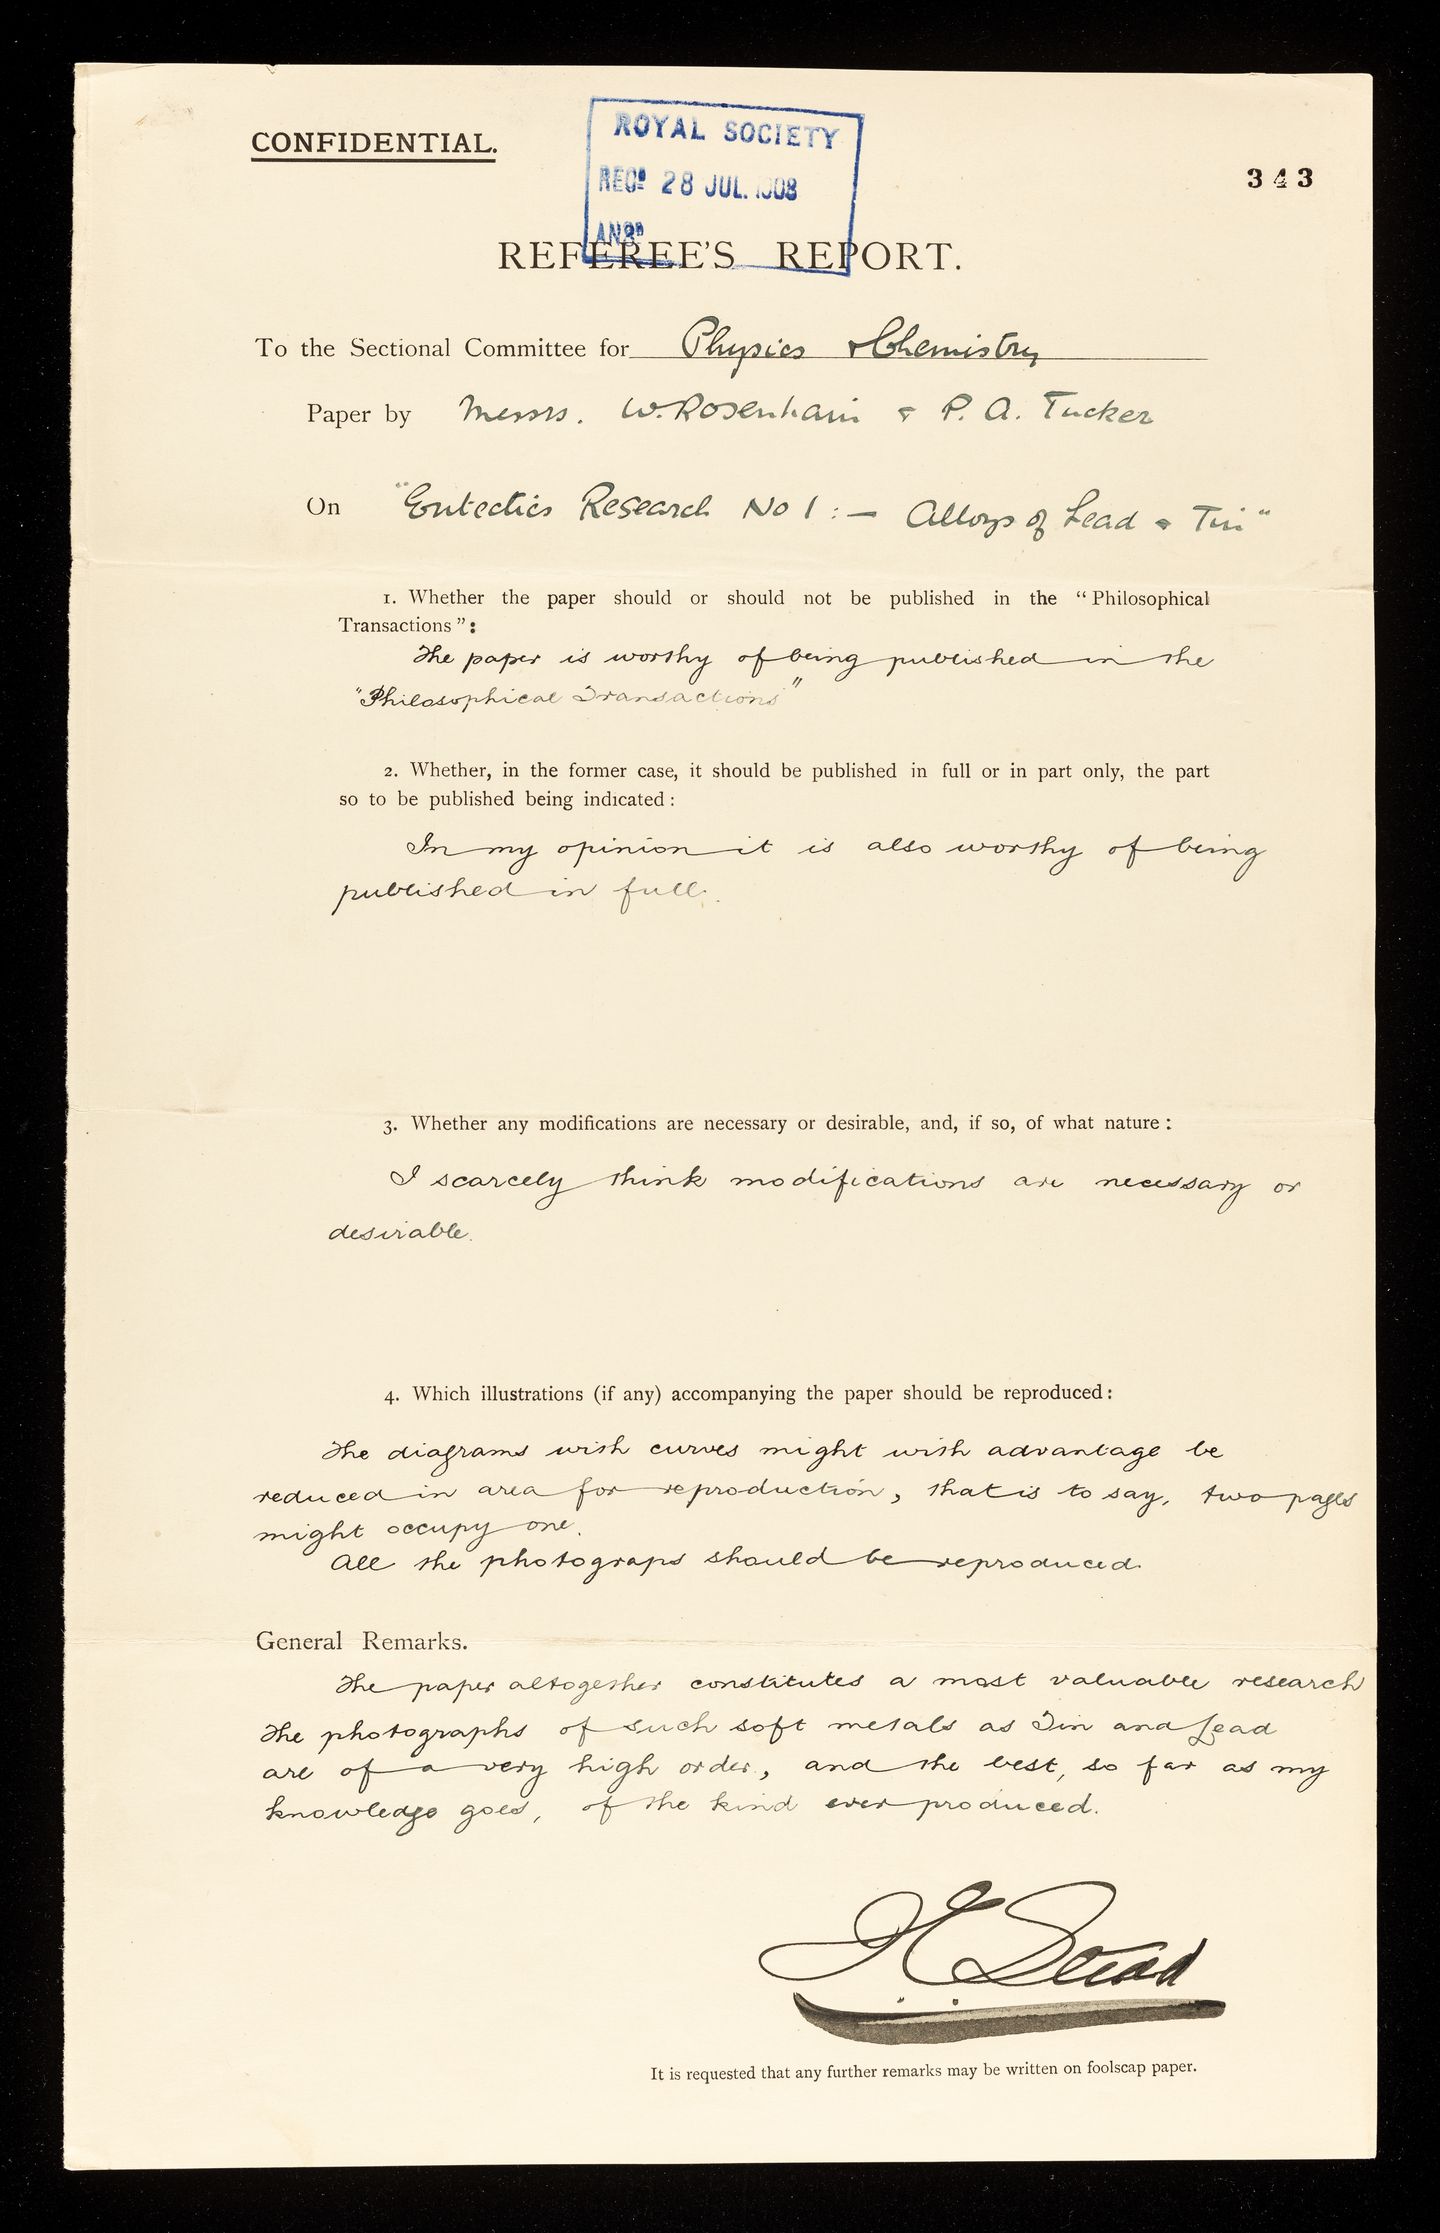 CONFIDENTIAL.
ROYAL SOCIETY
RECD 28 JUL. 1908
ANSD
343
REFEREE'S REPORT.
To the Sectional Committee for Physics & Chemistry
Paper by Messrs. W. Rosenhain & P. A. Tucker
On "Eutectics Research No 1 :— Alloys of Lead & Tin"
1. Whether the paper should or should not be published in the "Philosophical
Transactions":
The paper is worthy of being published in the
"Philosophical Transactions"
2. Whether, in the former case, it should be published in full or in part only, the part
so to be published being indicated:
In my opinion it is also worthy of being
published in full.
3. Whether any modifications are necessary or desirable, and, if so, of what nature:
I scarcely think modifications are necessary or
desirable.
4. Which illustrations (if any) accompanying the paper should be reproduced:
The diagrams with curves might with advantage be
reduced in area for reproduction, that is to say, two pages
might occupy one.
All the photograps should be reproduced.
General Remarks.
The paper altogether constitutes a most valuable research
The photographs of such soft metals as Tin and Lead
are of a very high order, and the best, so far as my
knowledge goes, of the kind ever produced.
J E Stead
It is requested that any further remarks may be written on foolscap paper.